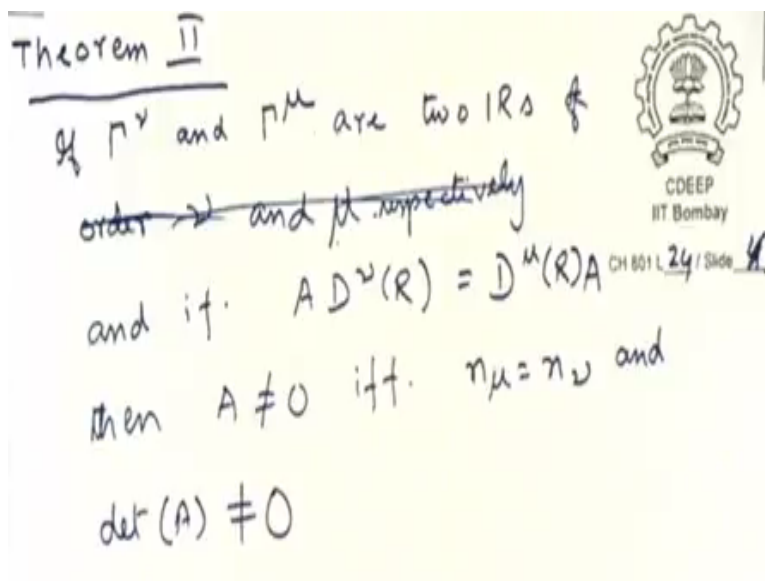 Theorem II
If Γ^ν and Γ^μ are two IRs of
order ν and μ respectively
and if. A D^ν(R) = D^μ(R)A
then A ≠ 0 iff. n_μ = n_ν and
det (A) ≠ 0
CDEEP
IIT Bombay
CH 601 L 24 / Slide